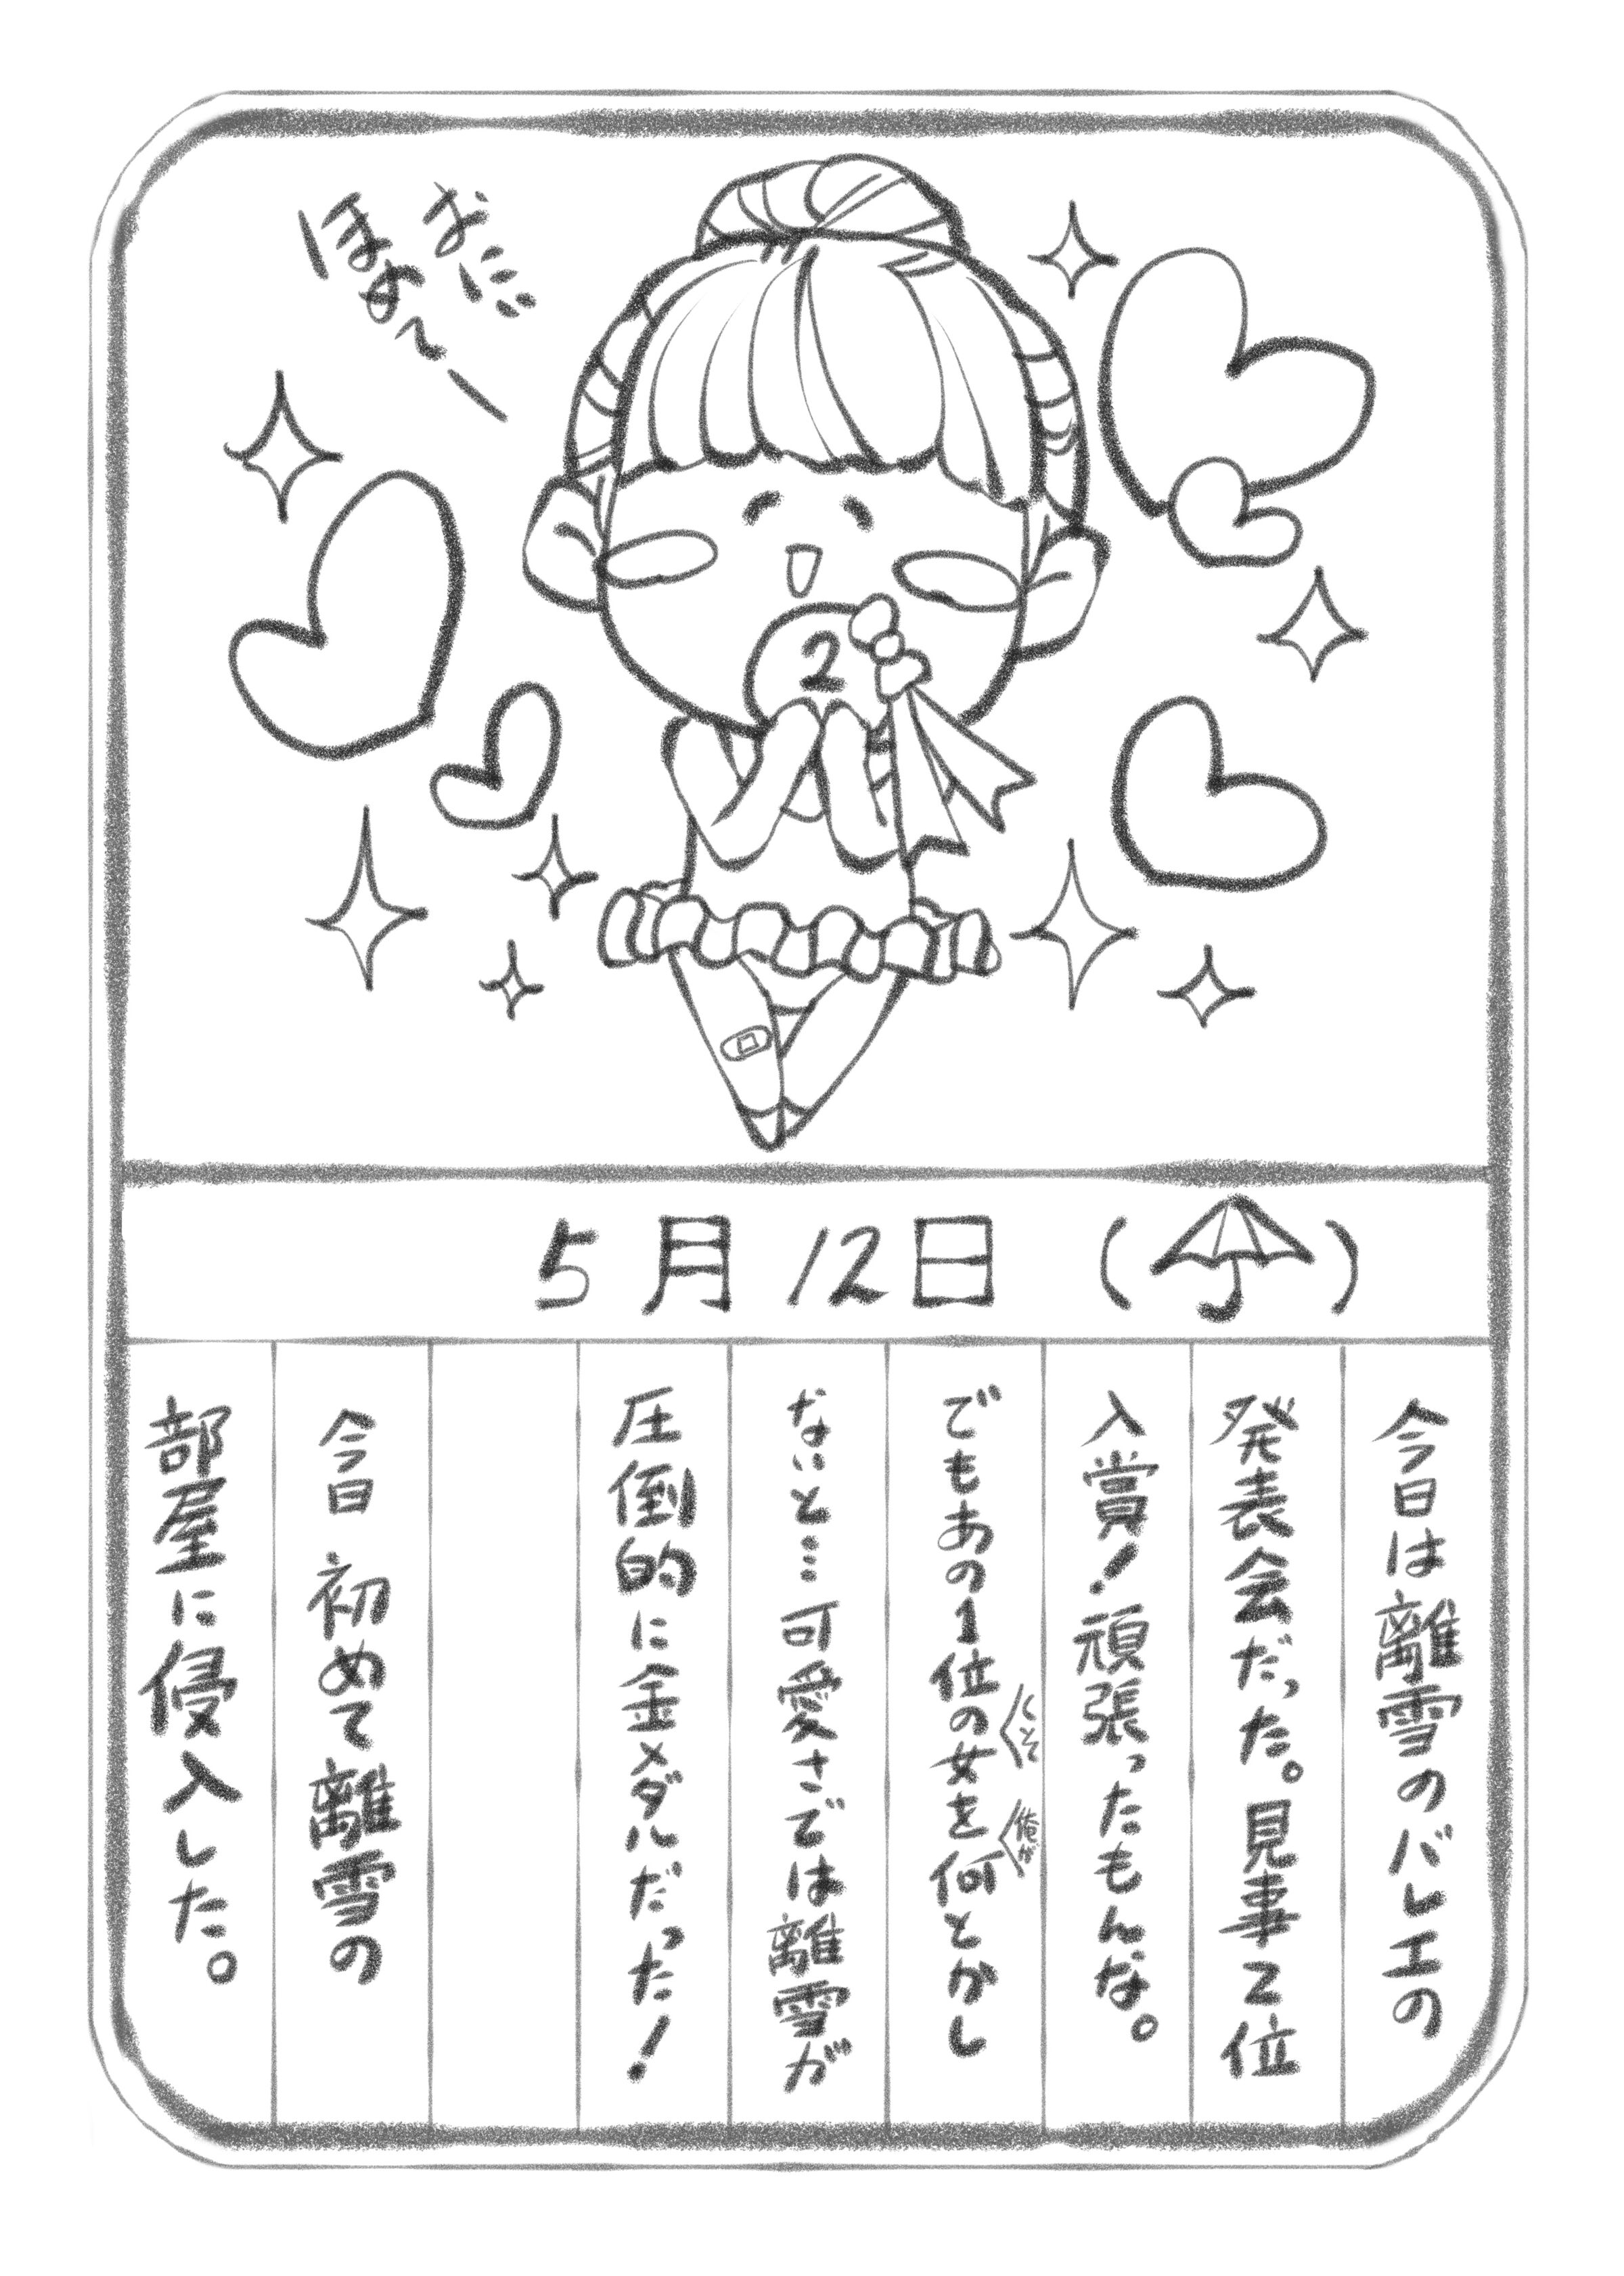 おに
ほめ〜ー
2
5月12日(☂)
今日は離雪のバレエの
発表会だった。見事2位
入賞!頑張ったもんな。
でもあの1位の女を何とかし
俺が
ないと…可愛さでは離雪が
圧倒的に金メダルだった!
今日初めて離雪の
部屋に侵入した。